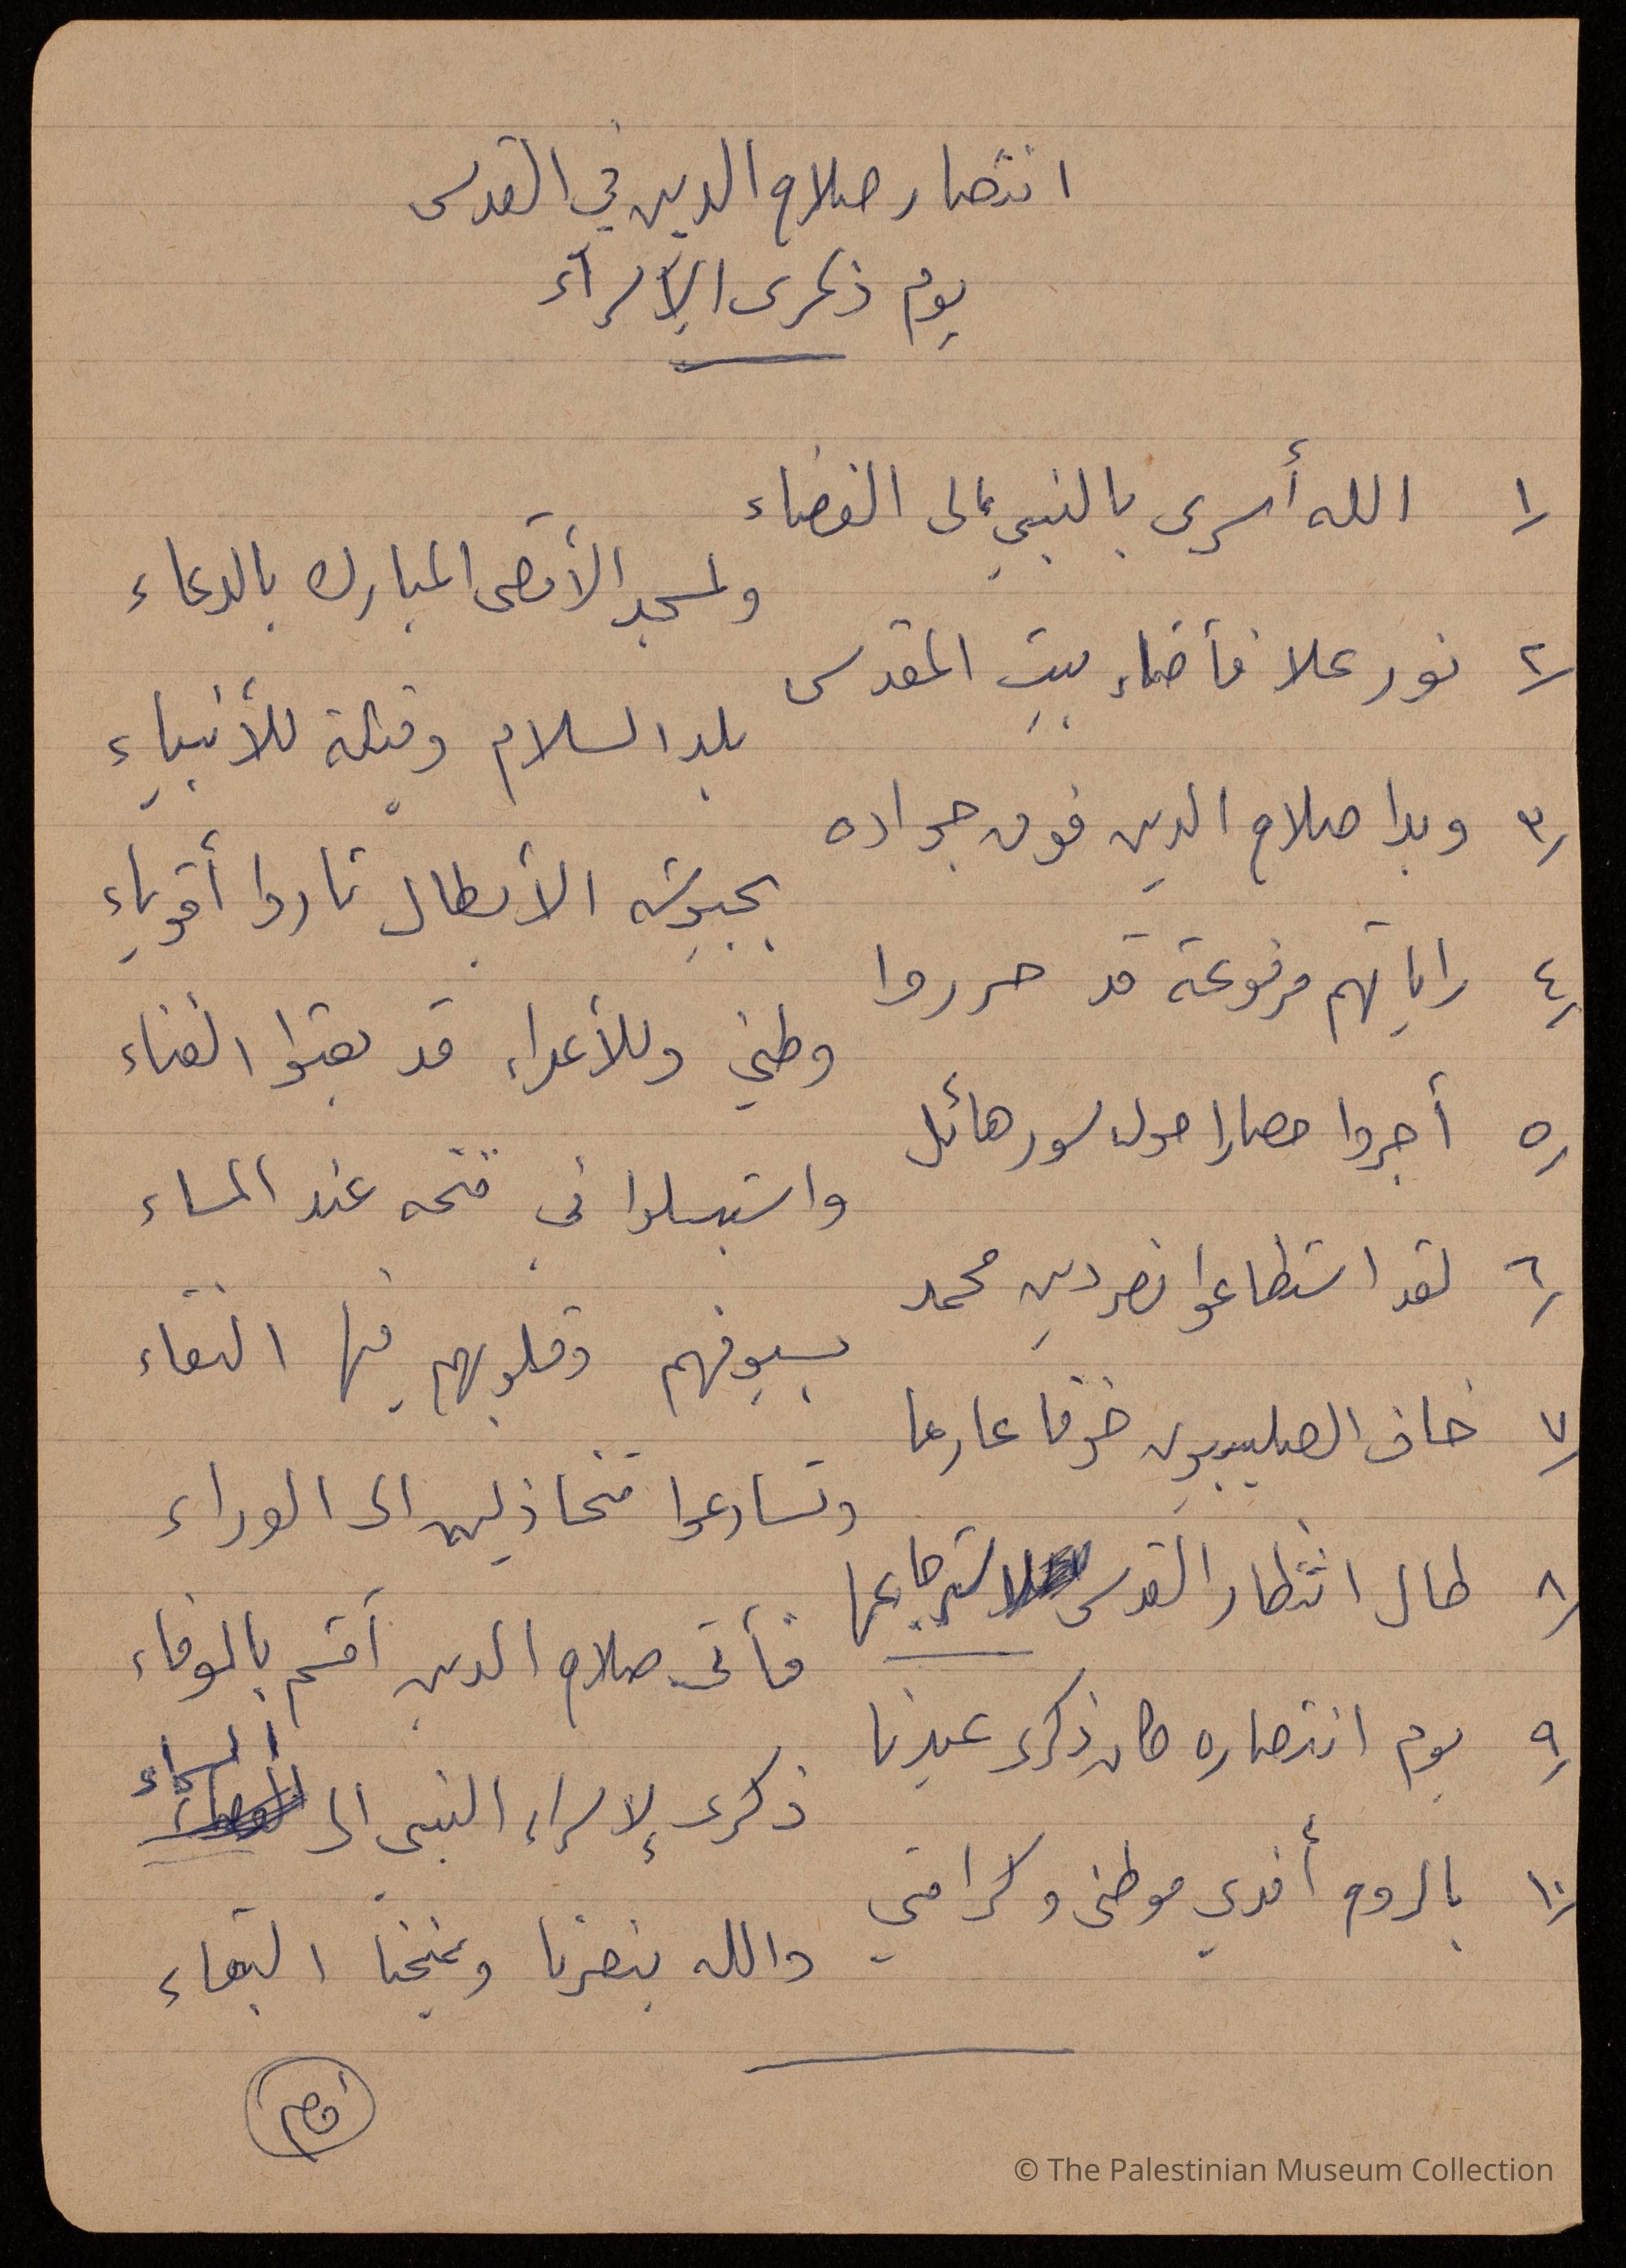 انتصار صلاح الدين في القدس
يوم ذكرى الإسرآء
١/ الله أسرى بالنبي إلى الفضاء
ولمسجد الأقصى المبارك بالدعاء
٢/ نور علا فأضاء بيت المقدس
بلد السلام وقبلة للأنبياء
٣/ وبدا صلاح الدين فوق جواده
بجيوشه الأبطال ثاروا أقوياء
٤/ راياتهم مرفوعة قد حرروا
وطني وللأعداء قد بقوا الفناء
٥/ أجروا حصارا حول سور هائل
واستبسلوا في فتحه عند المساء
٦/ لقد استطاعوا نصر دين محمد
بسيوفهم وقلوبهم فيها النقاء
٧/ خاف الصليبيون خوفا عارما
وتسارعوا متخاذلين الى الوراء
٨/ طال انتظار القدس لاسترجاعها
فأتى صلاح الدين أقسم بالوفاء
٩/ يوم انتصاره كان ذكرى عيدنا
ذكرى لإسراء النبي الى السماء
١٠/ بالروح أفدي موطني وكرامتي
والله ينصرنا ويمنحنا البقاء
© The Palestinian Museum Collection